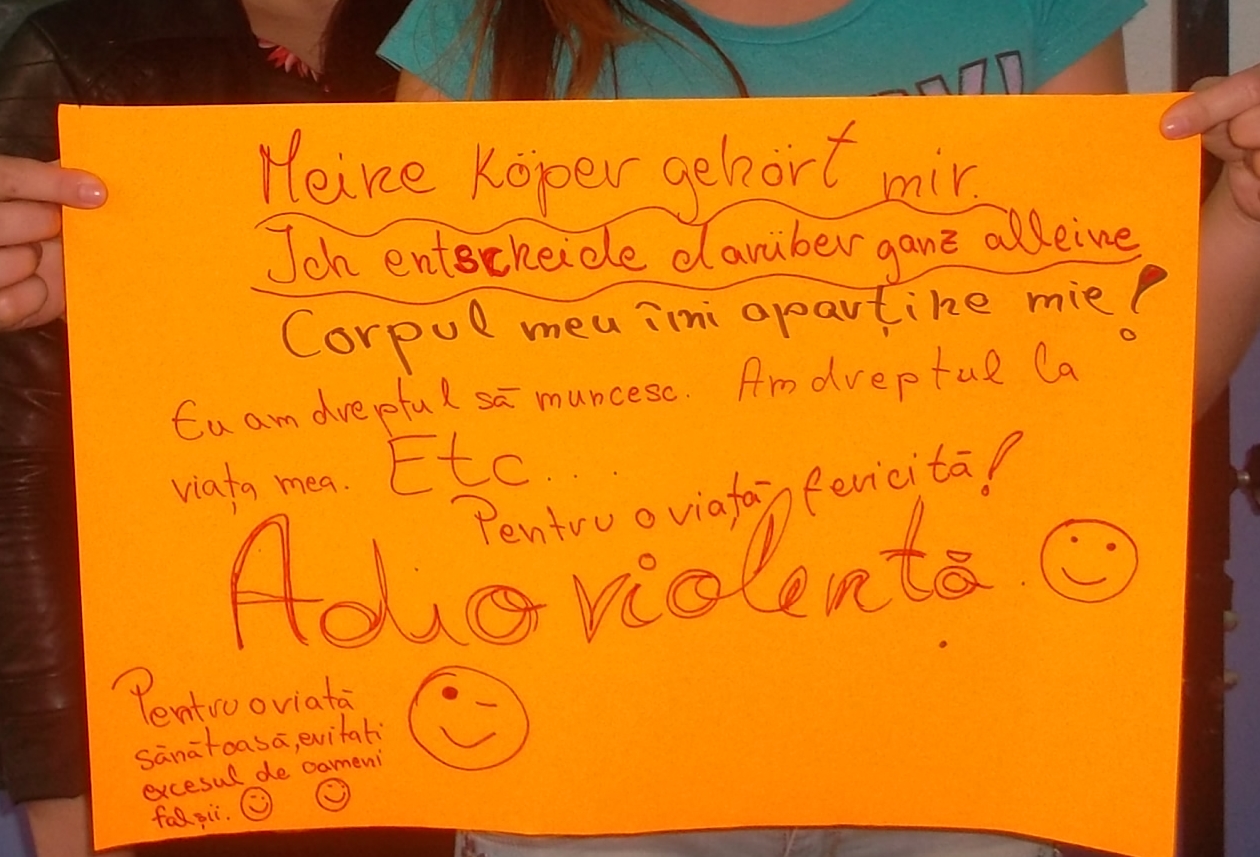 Meine Köper gehört mir.
Ich entscheide darüber ganz alleine
Corpul meu îmi aparține mie!
Eu am dreptul să muncesc. Am dreptul la
viața mea. Etc...
Pentru o viață fericită!
Adio violentă.
Pentru o viată
sănătoasă, evitati
excesul de oameni
falșii.